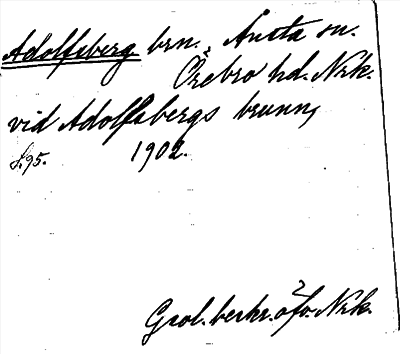 Adolfsberg brn., Ånsta sn.
Örebro hd. Nrk.
vid Adolfsbergs brunn,
S. 95. 1902.
Geol. beskr. öfv. Nrk.